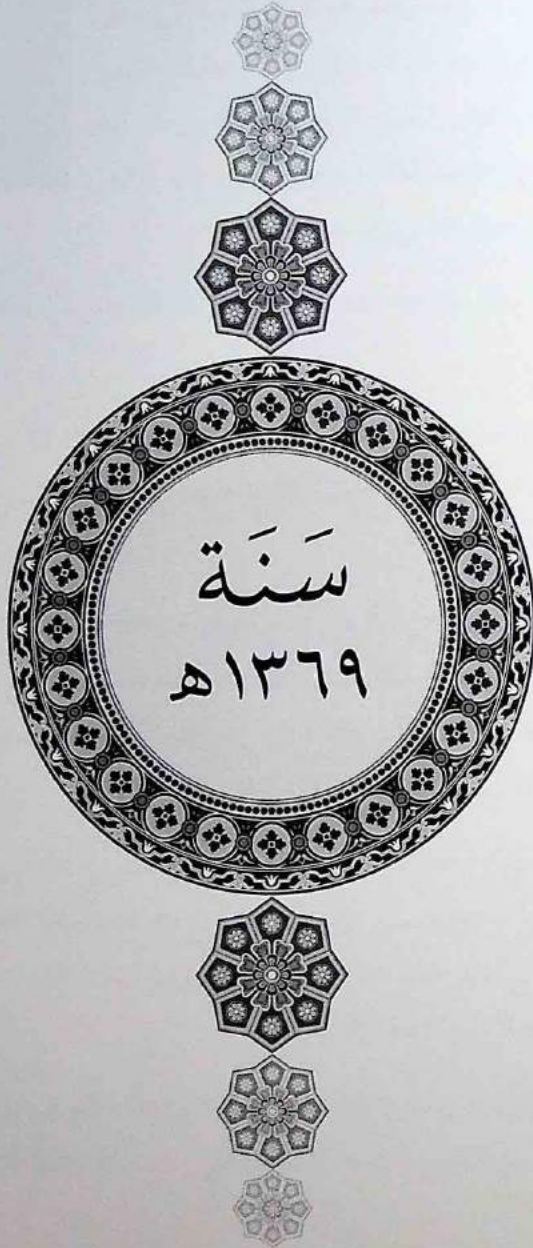 سَنَة
١٣٦٩ه